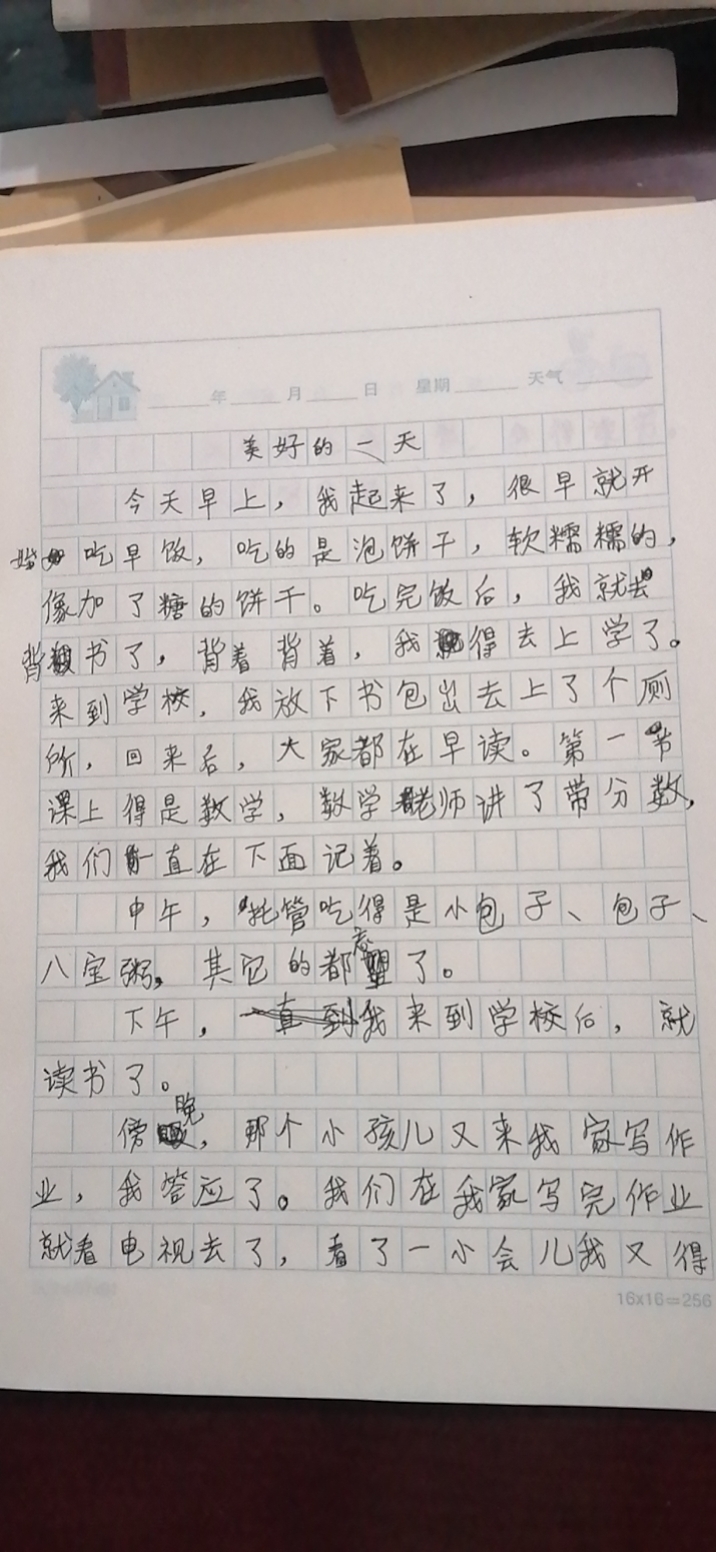 年 月 日 星期 天气
美好的一天
今天早上，我起来了，很早就开
始吃早饭，吃的是泡饼干，软糯糯的，
像加了糖的饼干。吃完饭后，我就去
背书了，背着背着，我得去上学了。
来到学校，我放下书包出去上了个厕
所，回来后，大家都在早读。第一节
课上得是数学，数学老师讲了带分数，
我们一直在下面记着。
中午，托管吃得是小包子、包子、
八宝粥，其它的都忘了。
下午，我来到学校后，就
读书了。
傍晚，那个小孩儿又来我家写作
业，我答应了。我们在我家写完作业
就看电视去了，看了一小会儿我又得
16x16=256